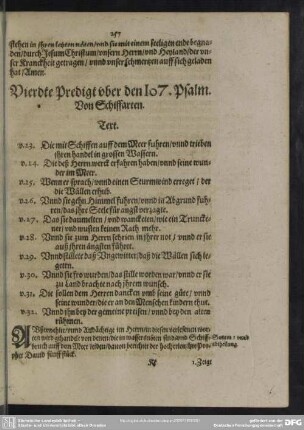 257
stehen in ihren letzten nöten/vnd sie mit einem seeligen ende begna-
den/durch Jesum Christum/vnsern Herrn/vnd Heyland/der vn-
ser Kranckheit getragen/vnnd vnser schmertzen auff sich geladen
hat/Amen.
Vierdte Predigt vber den 107. Psalm.
Von Schiffarten.
Text.
v.23. Die mit Schiffen auff dem Meer fuhren/vnnd trieben
ihren handel in grossen Wassern.
v.24. Die deß Herrn werck erfahren haben/vnnd seine wun-
der im Meer.
v.25. Wenn er sprach/vnnd einen Sturmwind erreget/der
die Wällen erhub.
v.26. Vnnd sie gehn Himmel fuhren/vnnd in Abgrund fuh-
ren/das ihre Seele für angst verzagte.
v.27. Das sie daumelten/vnd wanckelten/wie ein Truncke-
ner/vnd wusten keinen Rath mehr.
v.28. Vnnd sie zum Herrn schreien in ihrer not/vnnd er sie
auß ihren ängsten führet.
v.29. Vnnd stillete daß Vngewitter/daß die Wällen sich le-
geten.
v.30. Vnnd sie fro wurden/das stille worden war/vnnd er sie
zu Land brachte nach ihrem wunsch.
v.31. Die sollen dem Herrn dancken vmb seine güte/vnnd
seine wunder/die er an den Menschen kindern thut.
v.32. Vnnd ihn bey der gemeine preisen/vnnd bey den alten
rühmen.
Außerwehlte/vnnd Andächtige im Herrn in diesen verlesenen wor-
ten wird gehandelt von denen die in wassernöten
bruch auff dem Meer leiden/davon bericht der hocherleuchte Pro-
phet David fünff stück.
1. Zeigt